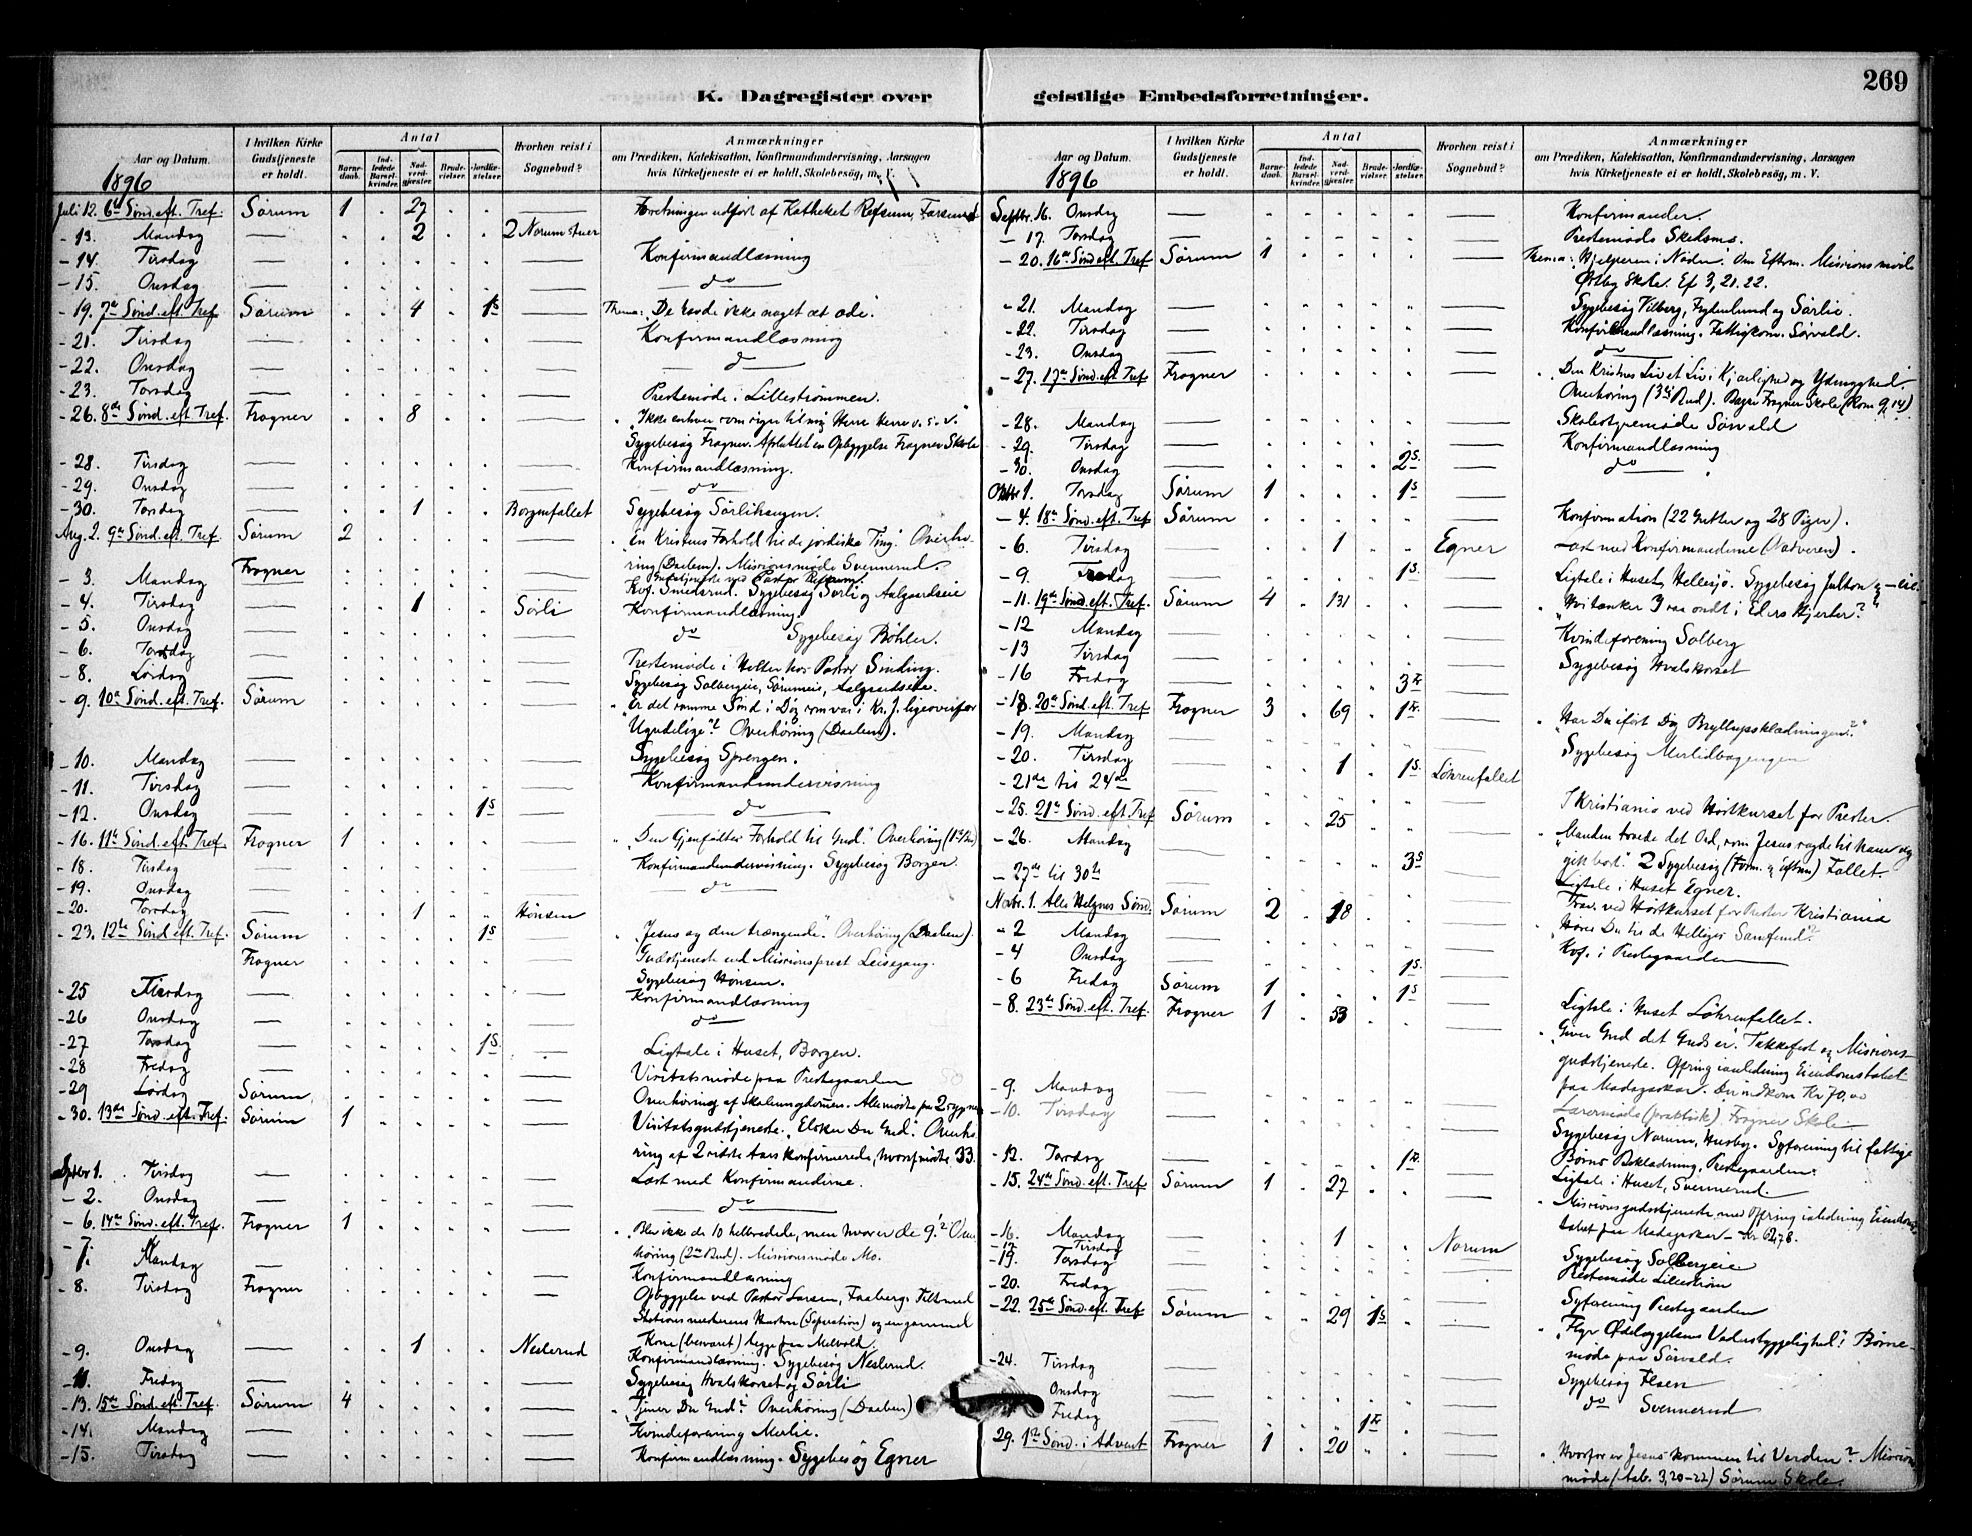 269
K. Dagregister over geistlige Embedsforretninger.
Aar og Datum. I hvilken Kirke Gudstjeneste er holdt. Antal Barne-daab. Ind-ledede Barsel-kvinder. Nad-verd-gjæster. Brude-vielser. Jordfæ-stelser. Hvorhen reist i Sognebud? Anmærkninger om Prædiken, Katekisation, Konfirmandundervisning, Aarsagen hvis Kirketjeneste ei er holdt, Skolebesøg, m. V.
1896
Juli 12. 6te Sønd. eft. Tref. Sørum 1 . 27 . . Forretningen udført af Katheket Refsum,
- 13. Mandag — . . 2 . . 2 Norum stuer
- 14. Tirsdag — Konfirmandlæsning
- 15. Onsdag — do
- 19. 7de Sønd. eft. Tref Sørum . . 4 . 1s Thema: "De havde ikke noget at æde".
- 21. Tirsdag — Konfirmandlæsning
- 22. Onsdag — do
- 23. Torsdag — Prestemøde i Lillestrømmen.
- 26. 8de Sønd. eft. Tref. Frogner . . 8 . . "Ikke enhver som siger til mig Herre Herre o. s. v."
Sygebesøg Frogner. Opbyggelse Frogner Skole
- 28. Tirsdag — Konfirmandlæsning.
- 29. Onsdag — do
- 30. Torsdag — . . 1 . . Borgenfallet Sygebesøg Sørlihaugen.
Aug. 2. 9de Sønd. eft. Tref. Sørum 2 "En Kristens Forhold til de jordiske Ting". Overhø-
Frogner ring (Daaben). Missionsmøde Svennerud.
Gudstjeneste ved Pastor Refsum.
- 3. Mandag — Kvf. Smedsrud. Sygebesøg Sørli og Aalgaardseie
- 4. Tirsdag — . . 1 . . Sørli Konfirmandlæsning.
- 5. Onsdag — do Sygebesøg Bøhler.
- 6. Torsdag — Prestemøde i Hos Pastor Sinding.
- 8. Lørdag — Sygebesøg Solbergeie, Sørumeie, Aalgaardseie.
- 9. 10de Sønd. eft. Tref. Sørum "Er det samme Sind i Dig som var i Kr. J. ligeoverfor
Ugudelige"? Overhøring (Daaben).
- 10. Mandag — Sygebesøg Sprengen.
- 11. Tirsdag — Konfirmandundervisning
- 12. Onsdag — 1s do
- 16. 11te Sønd. eft. Tref. Frogner 1 "Den Gjenfødtes Forhold til Gud". Overhøring
- 18. Tirsdag — Konfirmandundervisning. Sygebesøg Borgen.
- 19. Onsdag — do
- 20. Torsdag — . . 1 . . Hønsen
- 23. 12te Sønd. eft. Tref. Sørum 1s "Jesus og den trængende". Overhøring (Daaben).
Frogner Gudstjeneste ved Missionsprest Leisegang.
Sygebesøg Hønsen.
- 25 Tirsdag — Konfirmandlæsning
- 26 Onsdag — do
- 27 Torsdag — 1s. Ligtale i Huset, Borgen.
- 28 Fredag — Visitatsmøde paa Prestegaarden
- 29 Lørdag Sørum Overhøring af Skoleungdommen. Alle mødte paa 2 syge nær
- 30. 13de Sønd. eft. Tref. Sørum 1 Visitatsgudstjeneste. "Elsker Du Gud". Overhø-
ring af 2 sidste Aars konfirmerede, hvoraf mødte 33.
Septbr 1. Tirsdag — Læst med Konfirmanderne.
- 2. Onsdag — do
- 6. 14de Sønd. eft. Tref. Frogner 1 "Blev ikke de 10 helbredede, men hvor er de 9"? Over-
høring (2den Bud). Missionsmøde Mo.
- 7. Mandag — Konfirmandlæsning
- 8. Tirsdag Frogner — Opbyggelse ved Pastor Larsen, Faaberg. Tilstand
Stationsmesterens Hustru (Separation) og en gammel
Kone (bevaret) Legge paa Melvold.
- 9. Onsdag — . . 1 . . Neslerud Konfirmandlæsning. Sygebesøg Neslerud.
- 11. Fredag — Sygebesøg Hvalskorset og Sørli
- 13. 15de Sønd. eft. Tref. Sørum 4 "Tjener Du Gud"? Overhøring (Daaben)
- 14. Mandag — Kvindeforening Merlie.
- 15. Tirsdag — Konfirmandlæsning. Sygebesøg Egner
Aar og Datum. I hvilken Kirke Gudstjeneste er holdt. Antal Barne-daab. Ind-ledede Barsel-kvinder. Nad-verd-gjæster. Brude-vielser. Jordfæ-stelser. Hvorhen reist i Sognebud? Anmærkninger om Prædiken, Katekisation, Konfirmandundervisning, Aarsagen hvis Kirketjeneste ei er holdt, Skolebesøg, m. V.
1896
Septbr. 16. Onsdag — Konfirmander.
- 17. Torsdag — Prestemøde Skedsmo.
- 20. 16de Sønd. eft. Tref Sørum 1 Thema: "Hjelperen i Nøden". Om Efterm. Missionsmøde
Østby Skole. Ef 3, 21. 22.
- 21. Mandag — Sygebesøg Vilberg, Frydenlund og Sørlie.
- 22. Tirsdag — Konfirmandlæsning. Fattigkom. Sørvald.
- 23. Onsdag — do
- 27. 17de Sønd. eft. Tref Frogner "Den Kristnes Liv et Liv i Kjærlighed og Ydmyghed".
Overhøring (3die Bud). Frogner Skole (Rom 9, 14)
- 28. Mandag — Skolestyremøde Sørvald
- 29. Tirsdag — Konfirmandlæsning
- 30. Onsdag — 2s. do
Oktbr 1. Torsdag Sørum 1 1s.
- 4. 18de Sønd. eft. Tref Sørum Konfirmation (22 Gutter og 28 Piger).
- 6. Tirsdag — 1 Egner Læst med Konfirmanderne (Nadveren).
- 9. Fredag — 1s. Ligtale i Huset, Hellesjø. Sygebesøg Julton
- 11. 19de Sønd. eft. Tref. Sørum 4 . 131 "Hvi tænker I saa ondt i Eders Hjerter?"
- 12 Mandag — Kvindeforening Solberg
- 13 Tirsdag — Sygebesøg Hvalskorset
- 16 Fredag — 3Fr
- 18. 20de Sønd. eft. Tref Frogner 3 . 69 . 1Fr. "Har Du iført Dig Bryllupsklædningen?"
- 19. Mandag — Sygebesøg Merlidhagengen
- 20. Tirsdag — 1 . 1s. Løhrenfallet
- 21de til 24de — I Kristiania ved Høstkurset for Prester.
- 25. 21de Sønd. eft Tref Sørum . . 25 "Manden troede det Ord, som Jesus sagde til ham og
gik bort". 2 Sygebesøg (Form. og efterm) Fallet.
- 26. Mandag — 3s Ligtale i Huset Egner.
- 27de til 30te — Frav. ved Høstkurset for Prester Kristiania
Novbr. 1. Alle Helgnes Sønd. Sørum 2 . 18 "Hører Du til de Helliges Samfund"?
- 2 Mandag — Kvf. i Prestegaarden
- 4 Onsdag — 1s.
- 6 Fredag Sørum 1 1s Ligtale i Huset Løhrenfallet.
- 8. 23de Sønd. eft. Tref. Frogner 1 . 53 "Giver Gud det Guds er". Takkefest og Missions-
gudstjeneste. Ofring i anledning Eiendomstabet
paa Madagaskar. Der indkom Kr 70,00
- 9. Mandag — Læremøde (praktisk) Frogner Skole
- 10. Tirsdag — Sygebesøg Norum, Husby. Syforening til fattige
Børns Beklædning, Prestegaarden.
- 12. Torsdag — 1Fr. Ligtale i Huset, Svennerud.
- 15. 24de Sønd. eft. Tref Sørum 1 . 27 Missionsgudstjeneste med Ofring i anledning Eiendoms-
tabet paa Madagaskar –
- 16. Mandag — 1 Norum Sygebesøg Solbergeie
- 17. Tirsdag Prestemøde Lillestrøm
- 19. Torsdag — Syforening Prestegaarden
- 20. Fredag —
- 22. 25de Sønd. eft. Tref Sørum . . 29 1s "Flyr Ødelæggelsens Vederstyggelighed". Børne-
møde paa Sørvald.
- 24. Tirsdag — Sygebesøg Ilsen
Onsdag — do Svennerud
Fredag — 1Fr
29. 1ste Sønd. i Advent Frogner 1 . 20 "Hvorfor er Jesus kommen til Verden"? Missions-
møde (Aab. 3, 20-22) Sørum Skole.